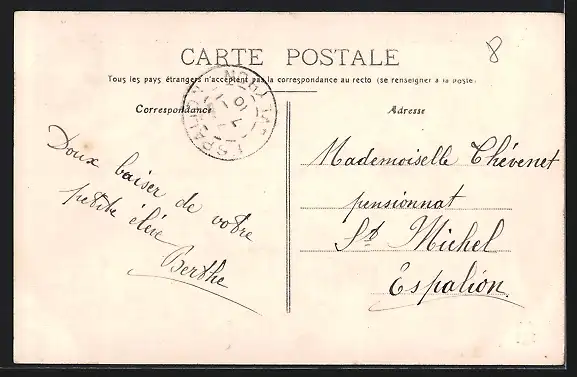 8
CARTE POSTALE
Tous les pays étrangers n'acceptent pas la correspondance au recto (se renseigner à la poste)
Correspondance
Adresse
Doux baiser de votre
petite élève
Berthe
Mademoiselle Thévenet
pensionnat
St Michel
Espalion